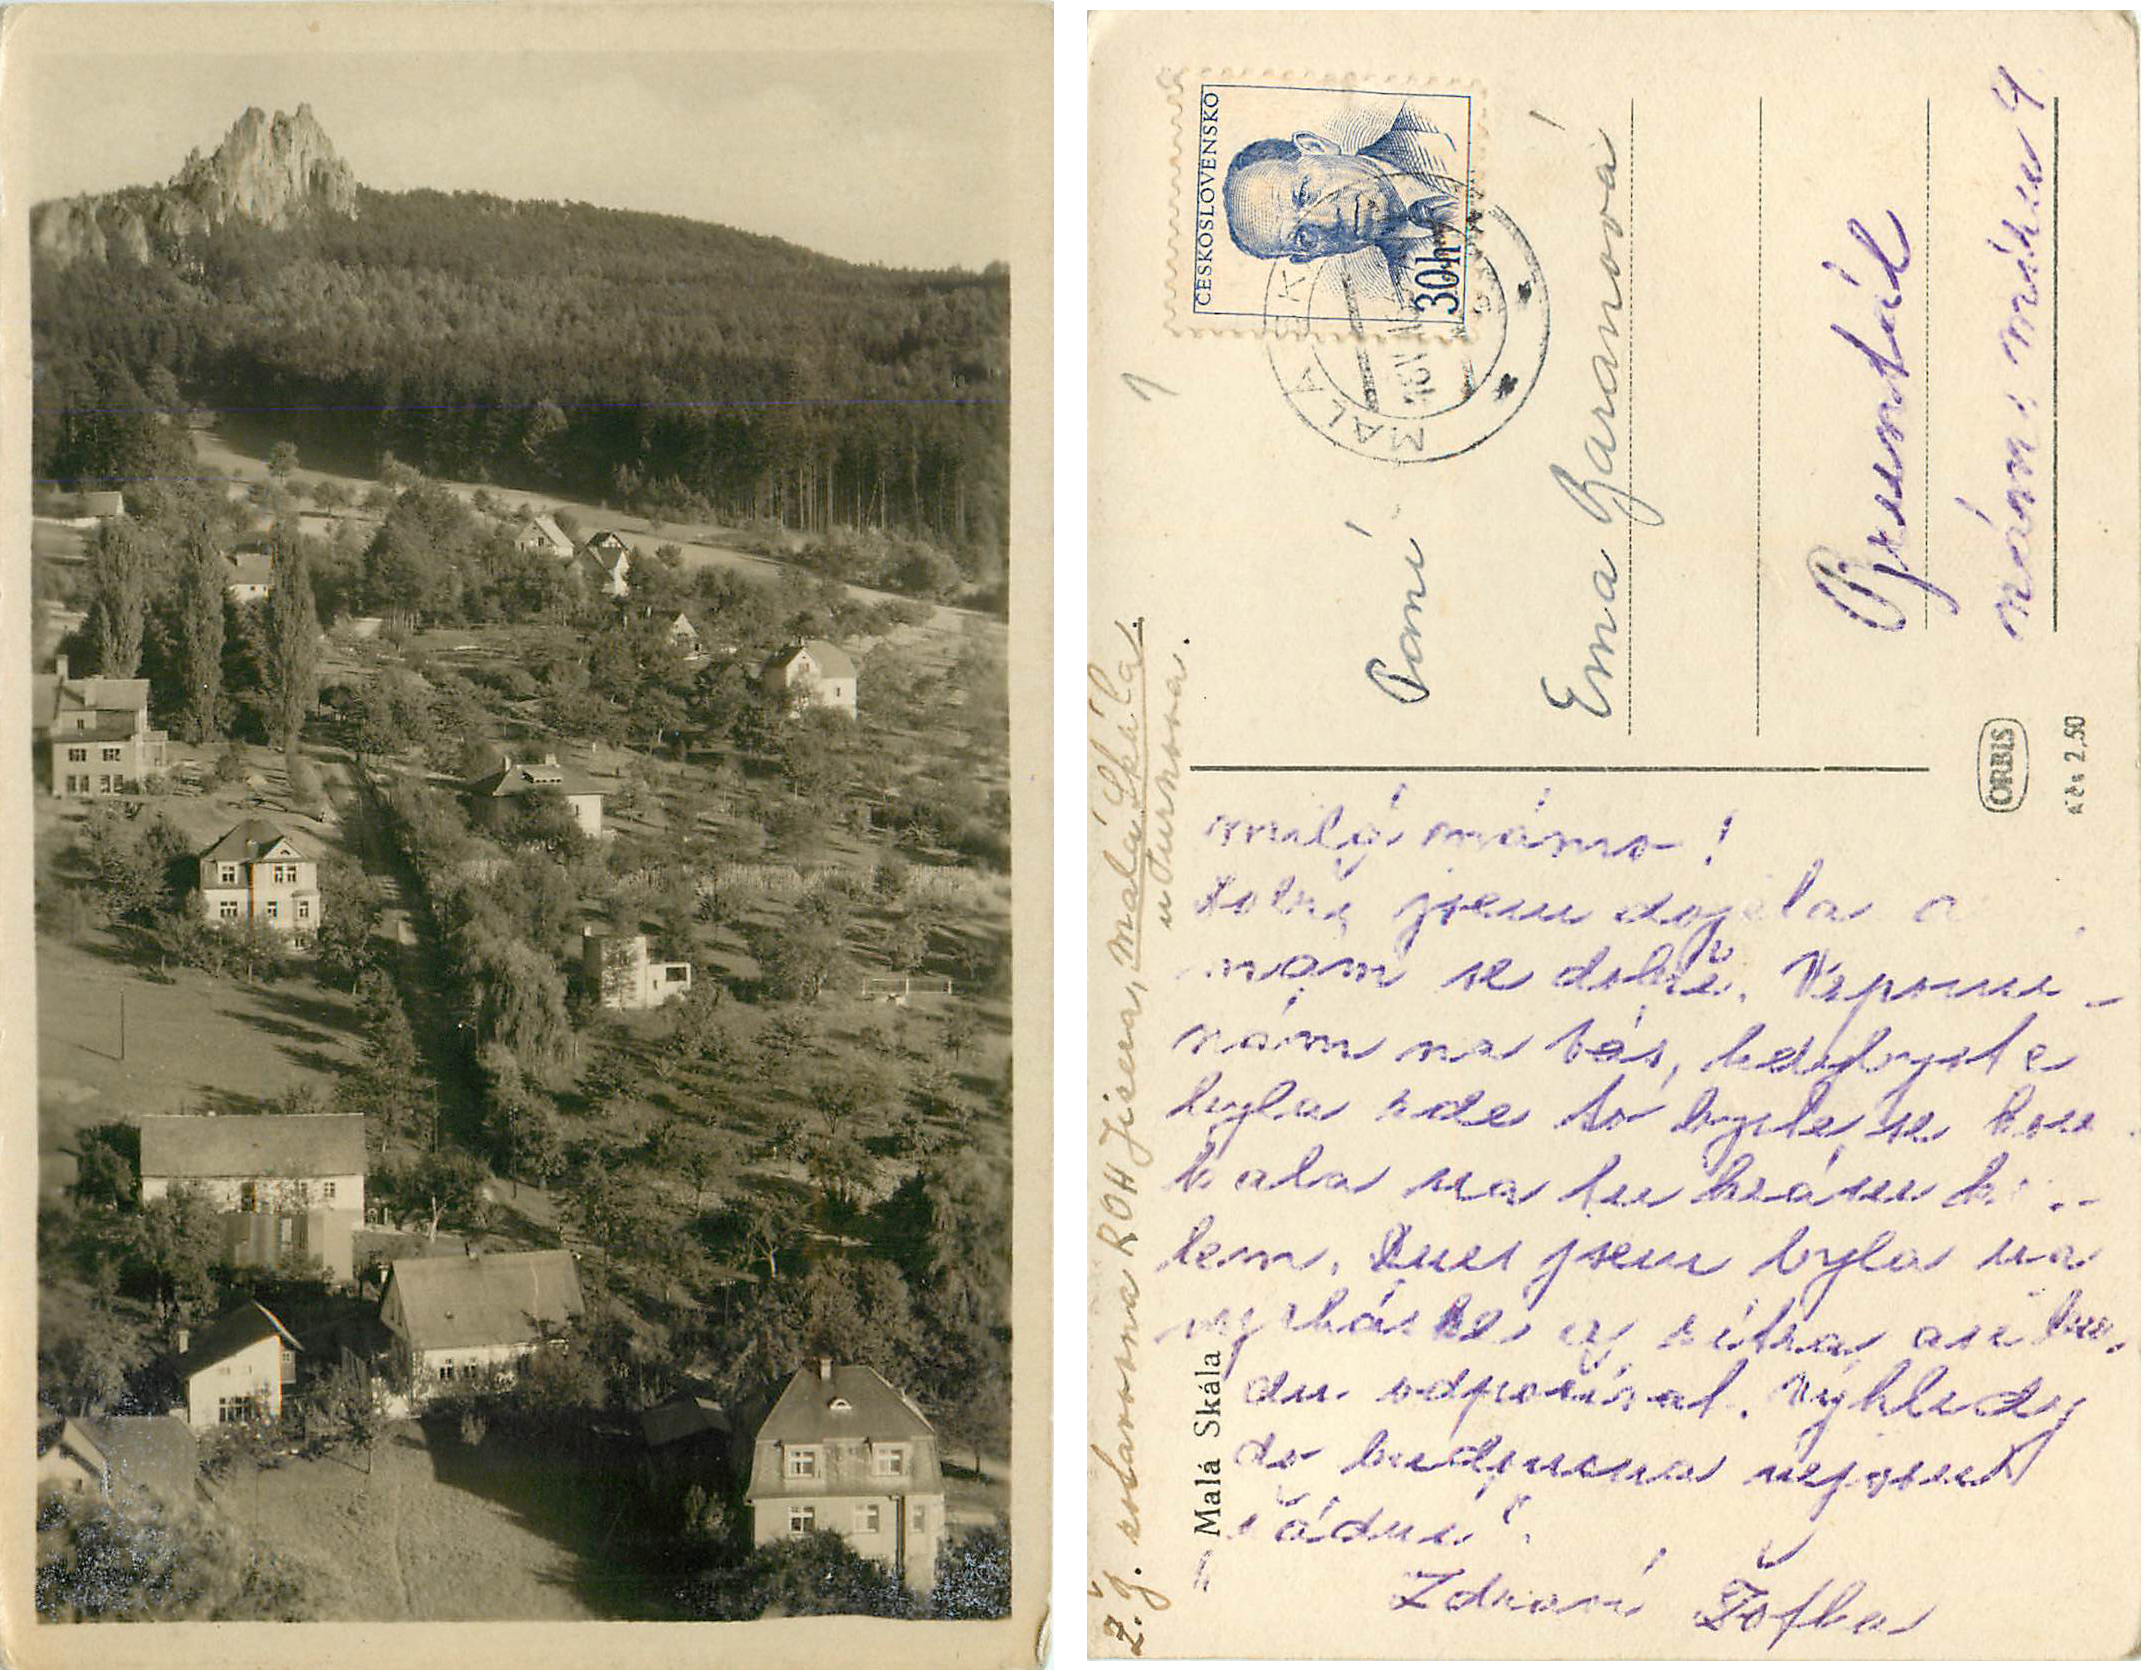 ČESKOSLOVENSKO
30h
MALÁ SK
1
Paní
Ema Baranová
Bruntál
nám. míru 4
ORBIS
Kčs 2,50
Malá Skála
Ž. J. zotavovna ROH Jizera, Malá Skála.
u Turnova.
milá mámo!
Dobře jsem dojela a
mám se dobře. Vzpomí-
nám na Vás, kdybyste
byla zde to byste se kou
kala na tu krásu ko-
lem. Dnes jsem byla na
vycházce a zítra asi bu-
du odpočívat. Výhledy
do budoucna nejsou
žádné.
Zdraví Žofka